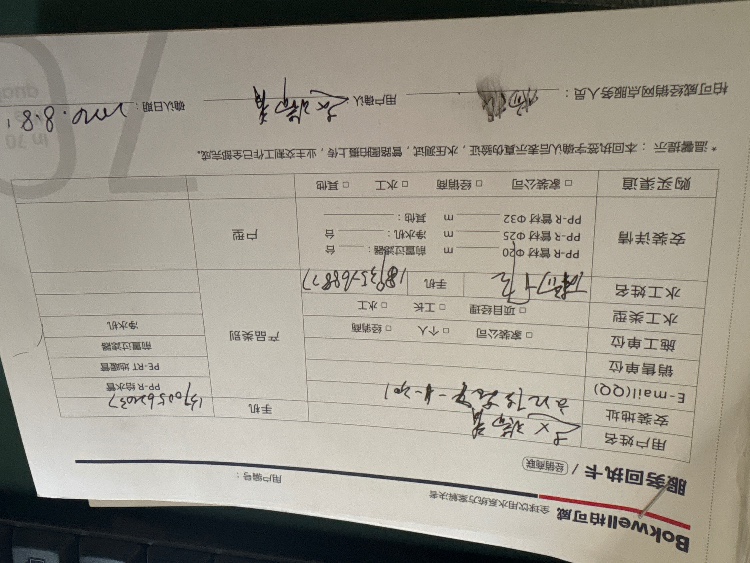 Bokwell柏可威 全球饮用水系统方案解决者
服务回执卡 / 经销商联
用户编号：
用户姓名
手机 13700562037
安装地址
E-mail(QQ)
销售单位
施工单位 □ 家装公司 □ 个人 □ 经销商
水工类型 □ 项目经理 □ 工长 □ 水工
水工姓名 手机
产品类别
PP-R 给水管
PE-RT 地暖管
前置过滤器
净水机
安装详情
PP-R 管材 Φ20 m 前置过滤器： 台
PP-R 管材 Φ25 m 净水机： 台
PP-R 管材 Φ32 m 其他：
户型
购买渠道 □ 家装公司 □ 经销商 □ 水工 □ 其他
* 温馨提示：本回执签字确认后表示真伪验证，水压测试，管路图拍摄上传，业主交割工作已全部完成。
柏可威经销网点服务人员：
用户确认
确认日期： 2020.8.8